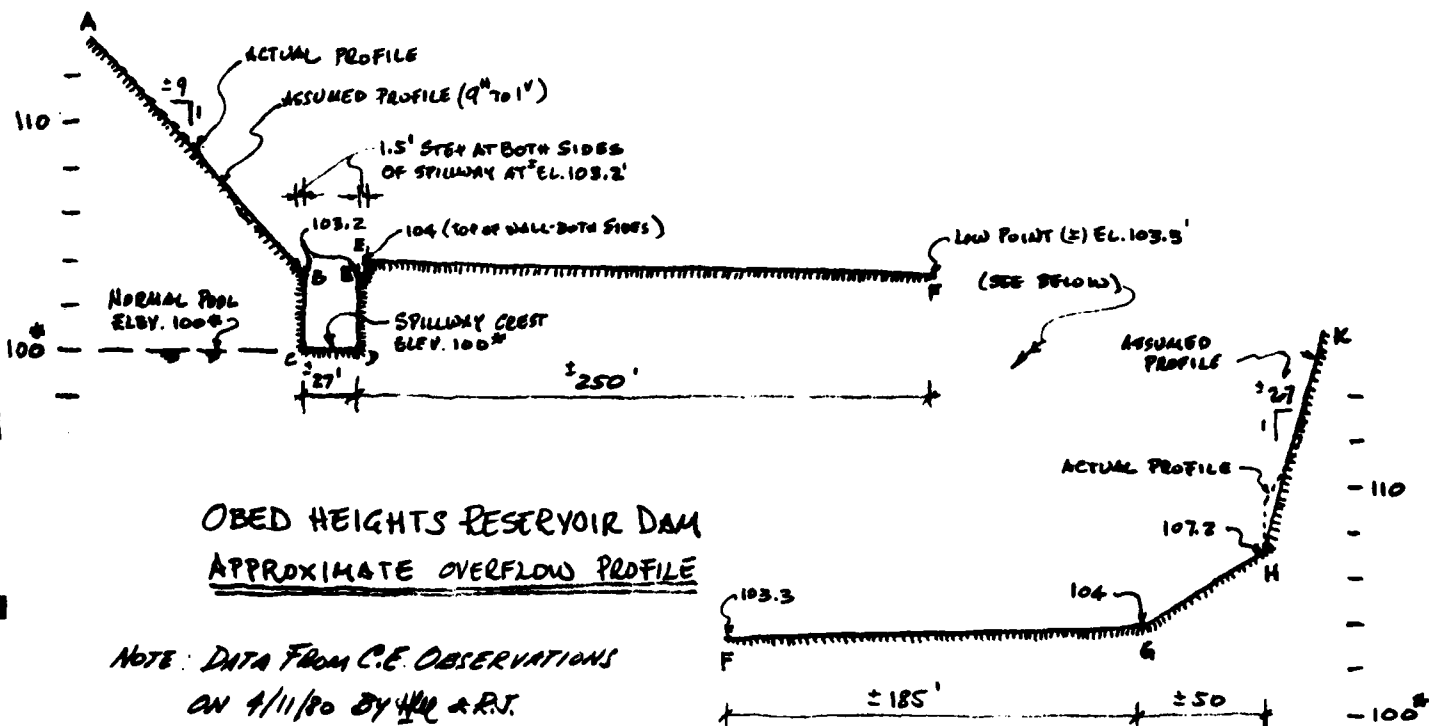 A
ACTUAL PROFILE
±9
1
ASSUMED PROFILE (9H TO 1V)
110
1.5' STEP AT BOTH SIDES
OF SPILLWAY AT ± EL. 103.2'
103.2
E
104 (TOP OF WALL-BOTH SIDES)
LOW POINT (±) EL. 103.3'
B
B
F
(SEE BELOW)
NORMAL POOL
ELEV. 100*
SPILLWAY CREST
ELEV. 100*
100*
C
D
±27'
±250'
ASSUMED
PROFILE
K
±27
1
ACTUAL PROFILE
110
107.2
H
OBED HEIGHTS RESERVOIR DAM
APPROXIMATE OVERFLOW PROFILE
103.3
104
F
G
NOTE: DATA FROM C.E. OBSERVATIONS
ON 4/11/80 BY & R.J.
±185'
±50
100*